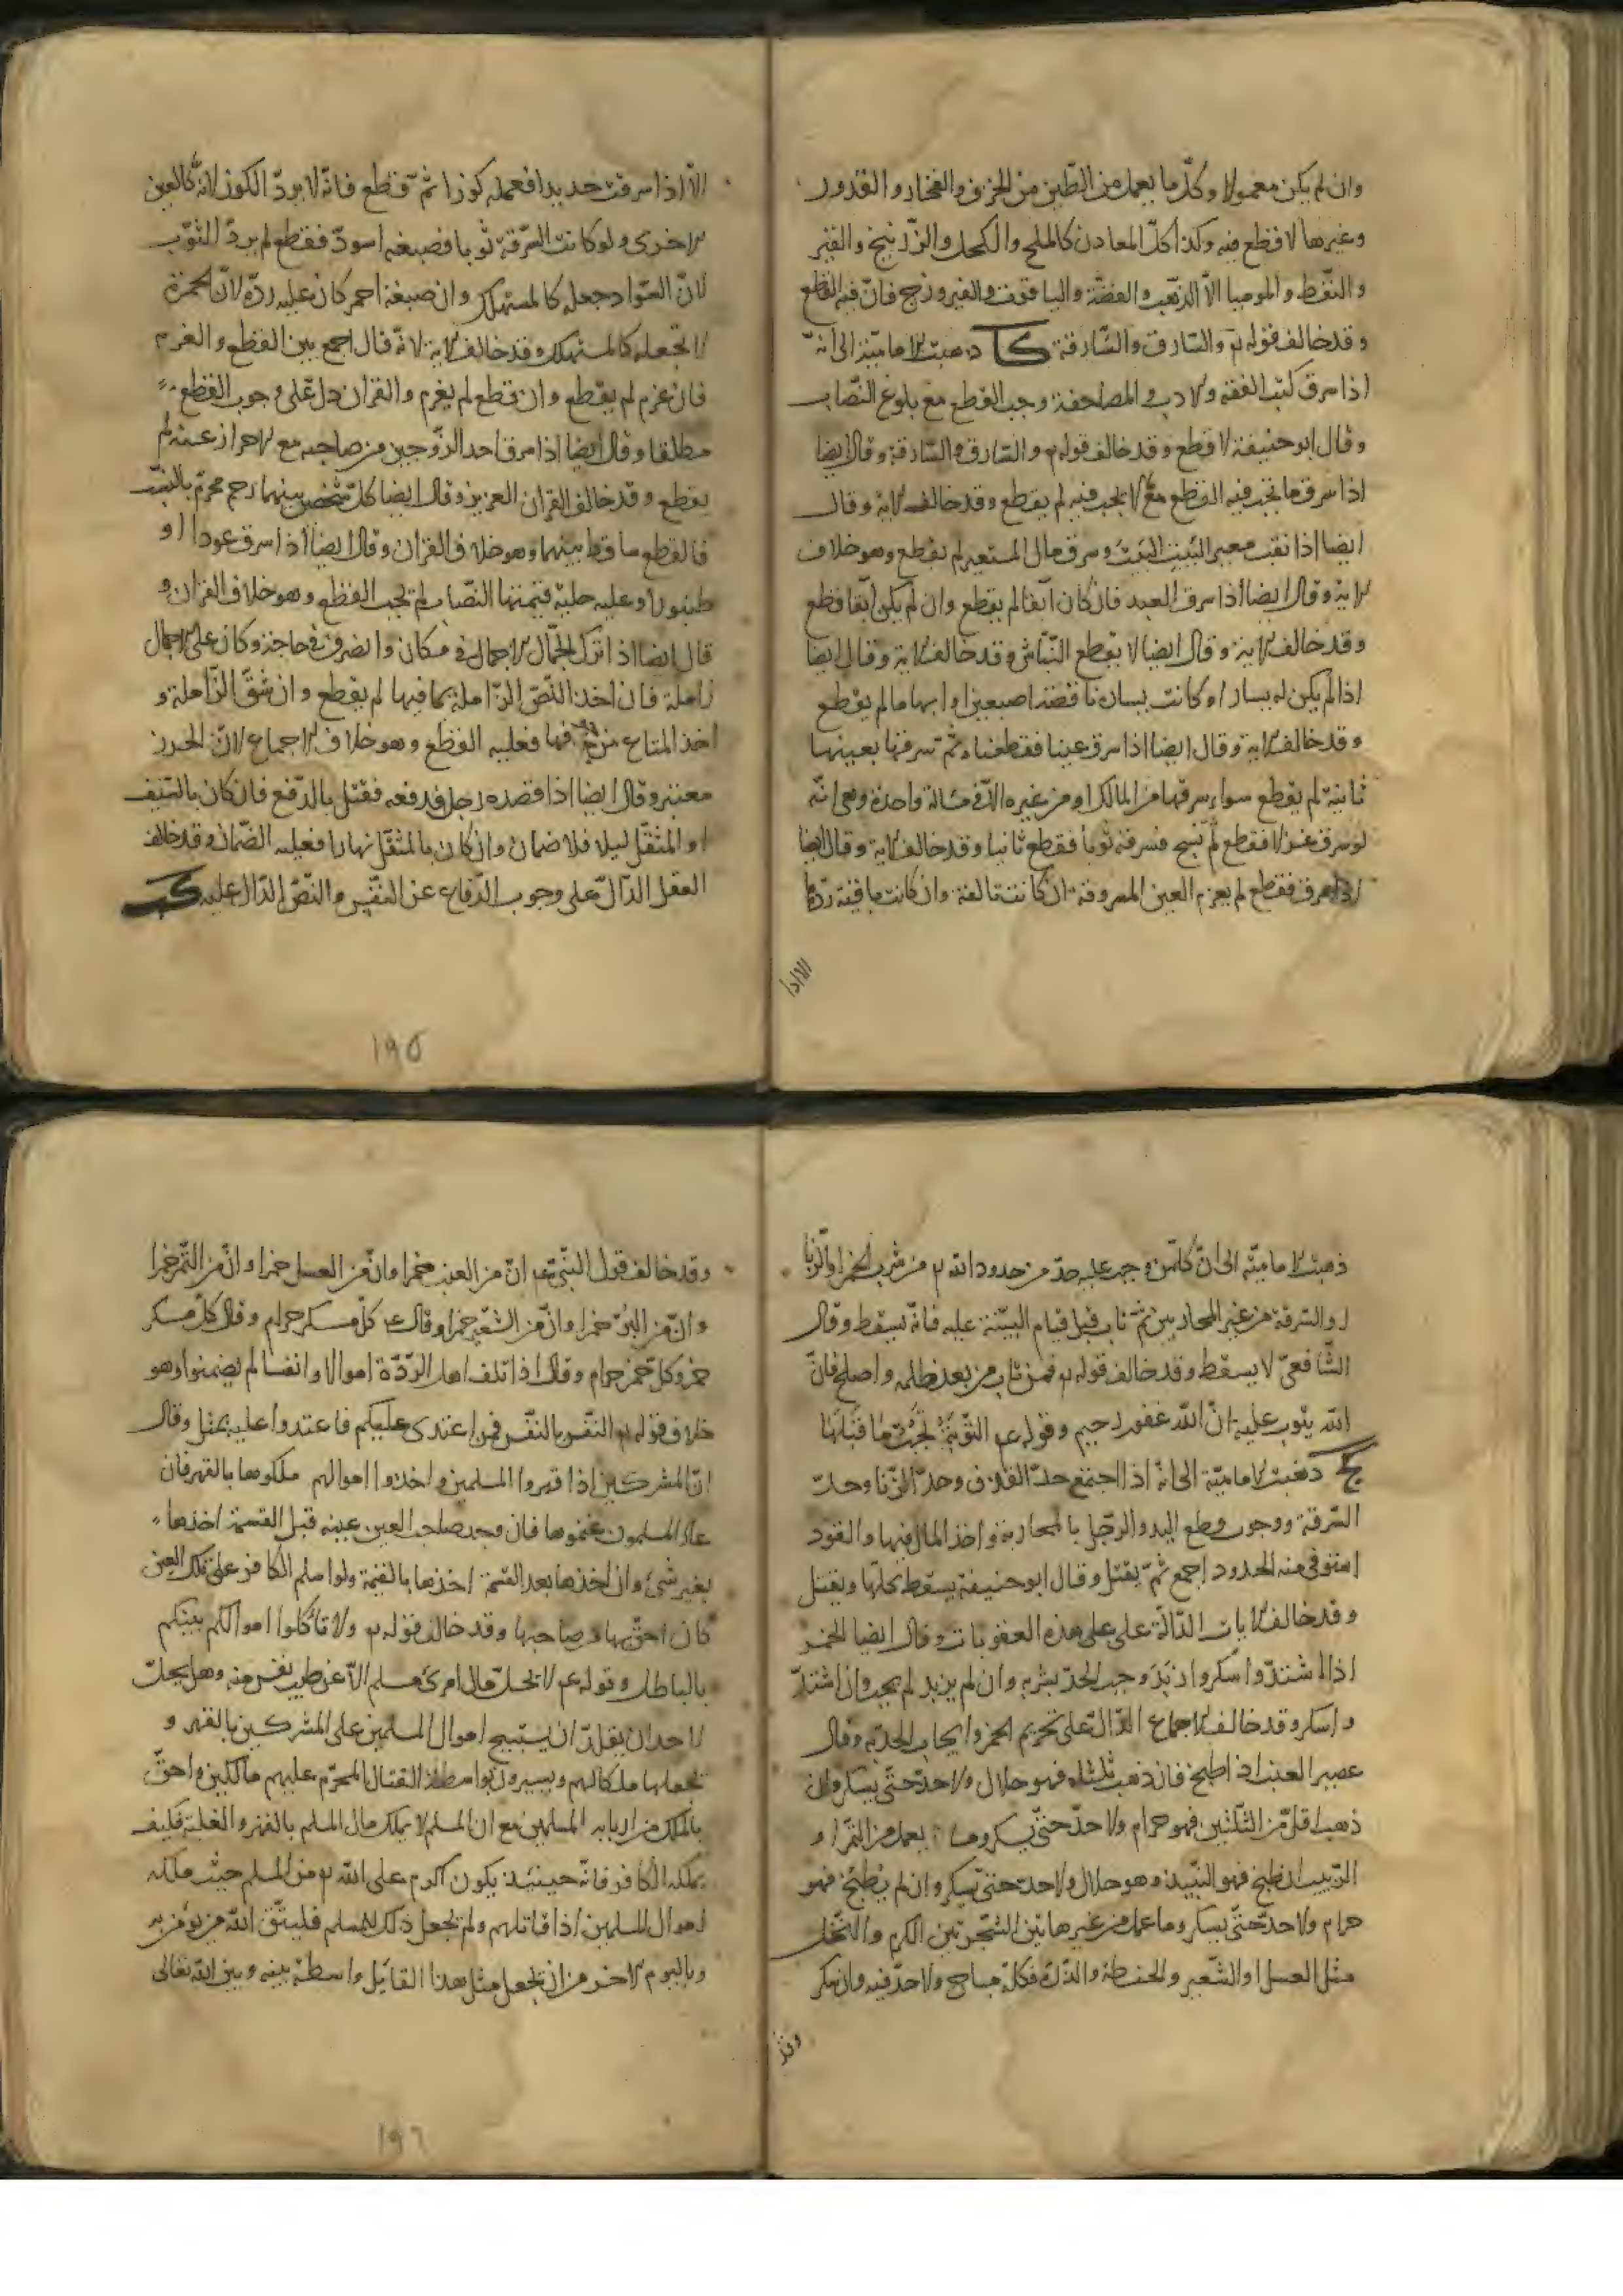 وان لم يكن معمولا وكلّ ما يعمل من الطّين من الخزف والفخار والقدور
وغيرها لا قطع فيه وكذا كلّ المعادن كالملح والكحل والزّرنيخ والقير
والنّفط والموميا الّا الذّهب والفضّة والياقوت والفيروزج فانّ فيه القطع
وقد خالف قوله تع والسّارق والسّارقة كا ذهبت الاماميّة الى انّه
اذا سرق كتب الفقه والادب والمصاحف وجب القطع مع بلوغ النّصاب
وقال ابو حنيفة لا قطع وقد خالف قوله تع والسّارق والسّارقة وقال ايضا
اذا سرق ما يجب فيه القطع مع ما لا يجب فيه لم يقطع وقد خالف الاية وقال
ايضا اذا نقب معير البيت البيت وسرق مال المستعير لم يقطع وهو خلاف
الاية وقال ايضا اذا سرق العبد فان كان آبقا لم يقطع وان لم يكن آبقا قطع
وقد خالف الاية وقال ايضا لا يقطع النّبّاش وقد خالف الاية وقال ايضا
اذا لم يكن له يسار او كانت يساره ناقصة اصبعين او ابهاما لم يقطع
وقد خالف الاية وقال ايضا اذا سرق عينا فقطعناه ثمّ سرقها بعينها
ثانية لم يقطع سواء سرقها من المالك او من غيره الّا في مسالة واحدة وهي انّه
لو سرق غزلا فقطع ثم نسج فسرقه ثوبا فقطع ثانيا وقد خالف الاية وقال ايضا
اذا سرق فقطع لم يغرم العين المسروقة ان كانت تالفة وان كانت باقية ردّها
الّا اذا
الّا اذا سرقت حديدا فعمله كوزا ثمّ قطع فانّه لا يردّ الكوز لانّه كالعين
الاخرى ولو كانت السّرقة ثوبا فصبغه اسودّ فقطع لم يردّ الثّوب
لانّ السّواد جعله كالمستهلك وان صبغه احمر كان عليه ردّه لانّ الحمرة
لا تجعله كالمستهلك وقد خالف الاية لانّه قال اجمع بين القطع والغرم
فان غرم لم يقطع وان قطع لم يغرم والقران دلّ على وجوب القطع
مطلقا وقال ايضا اذا سرق احد الزّوجين من صاحبه مع الاحراز عنه لم
يقطع وقد خالف القران العزيز وقال ايضا كلّ شخصين بينهما رحم محرّم بالنّسب
فالقطع ساقط بينهما وهو خلاف القران وقال ايضا اذا سرق عودا او
طنبورا وعليه حلية قيمتها النّصاب لم يجب القطع وهو خلاف القران و
قال ايضا اذا ترك الجمّال الاجمال في مكان وانصرف في حاجة وكان على الاجمال
زاملة فان اخذ اللّصّ الزّاملة بما فيها لم يقطع وان شقّ الزّاملة و
اخذ المتاع من جوفها فعليه القطع وهو خلاف الاجماع لانّ الحرز
معتبر وقال ايضا اذا قصده رجل فدفعه فقتل بالدّفع فان كان بالسّيف
او المثقّل ليلا فلا ضمان وان كان بالمثقّل نهارا فعليه الضّمان وقد خالف
العقل الدّالّ على وجوب الدّفاع عن النّفس والنّصّ الدّالّ عليه كب
١٩٥
ذهبت الاماميّة الى انّ كلّ من وجب عليه حدّ من حدود الله تع من شرب الخمر او الزّنا
او السّرقة من غير المحاربين ثمّ تاب قبل قيام البيّنة عليه فانّه يسقط وقال
الشّافعيّ لا يسقط وقد خالف قوله تع فمن تاب من بعد ظلمه واصلح فانّ
الله يتوب عليه انّ الله غفور رحيم وقوله عم التّوبة تجبّ ما قبلها
كج ذهبت الاماميّة الى انّه اذا اجتمع حدّ القذف وحدّ الزّنا وحدّ
السّرقة ووجوب قطع اليد والرّجل بالمحاربة واخذ المال فيها والقود
استوفي منه الحدود اجمع ثمّ يقتل وقال ابو حنيفة يسقط كلّها ويقتل
وقد خالف الايات الدّالّة على على هذه العقوبات وقال ايضا الخمر
اذا اشتدّ واسكر وازبد وجب الحدّ بشربه وان لم يزبد لم يجب وان اشتدّ
واسكر وقد خالف الاجماع الدّالّ على تحريم الخمر وايجاب الحدّ به وقال
عصير العنب اذا طبخ فان ذهب ثلثاه فهو حلال ولا حدّ حتّى يسكر وان
ذهب اقلّ من الثّلثين فهو حرام ولا حدّ حتّى يسكر وما يعمل من التّمر او
الزّبيب ان طبخ فهو النّبيذ وهو حلال ولا حدّ حتّى يسكر وان لم يطبخ فهو
حرام ولا حدّ حتّى يسكر وما عمل من غير هاتين الشّجرتين الكرم والنّخل
مثل العسل او الشّعير والحنطة والذّرة فكلّه مباح ولا حدّ فيه وان سكر
وقد
وقد خالف قول النّبيّ عم انّ من العنب خمرا وانّ من العسل خمرا وانّ من التّمر خمرا
وانّ من البرّ خمرا وانّ من الشّعير خمرا وقال ع كلّ مسكر حرام وقال كلّ مسكر
خمر وكلّ خمر حرام وقال اذا تلف اهل الرّدّة اموالا وانفسا لم يضمنوا وهو
خلاف قوله تع النّفس بالنّفس فمن اعتدى عليكم فاعتدوا عليه بمثل وقال
انّ المشركين اذا قهروا المسلمين واخذوا اموالهم ملكوها بالقهر فان
عاد المسلمون غنموها فان وجد صاحب العين عينه قبل القسمة اخذها
بغير شيء وان اخذها بعد القسمة اخذها بالقيمة ولو اسلم الكافر على تلك العين
كان احقّ بها من صاحبها وقد خالف قوله تع ولا تأكلوا اموالكم بينكم
بالباطل وقوله عم لا يحلّ مال امرئ مسلم الّا عن طيب نفس منه وهل يحلّ
لاحد ان يقلّد ان يستبيح اموال المسلمين على المشركين بالقهر و
يجعلها ملكا لهم ويصيرون بواسطة القتال المحرّم عليهم مالكين واحقّ
بالملك من ارباب المسلمين مع ان المسلم لا يملك مال المسلم بالقهر والغلبة فكيف
يملكه الكافر فانّه حينئذ يكون اكرم على الله تع من المسلم حيث ملكه
اموال المسلمين اذا قاتلهم ولم يجعل ذلك للمسلم فليتّق الله من يؤمن به
وباليوم الاخر من ان يجعل مثل هذا القائل واسطة بينه وبين الله تعالى
١٩٦